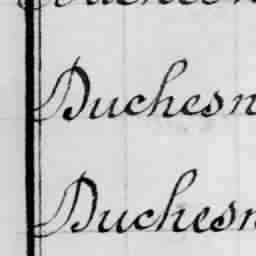 Duchesn
Duchesn